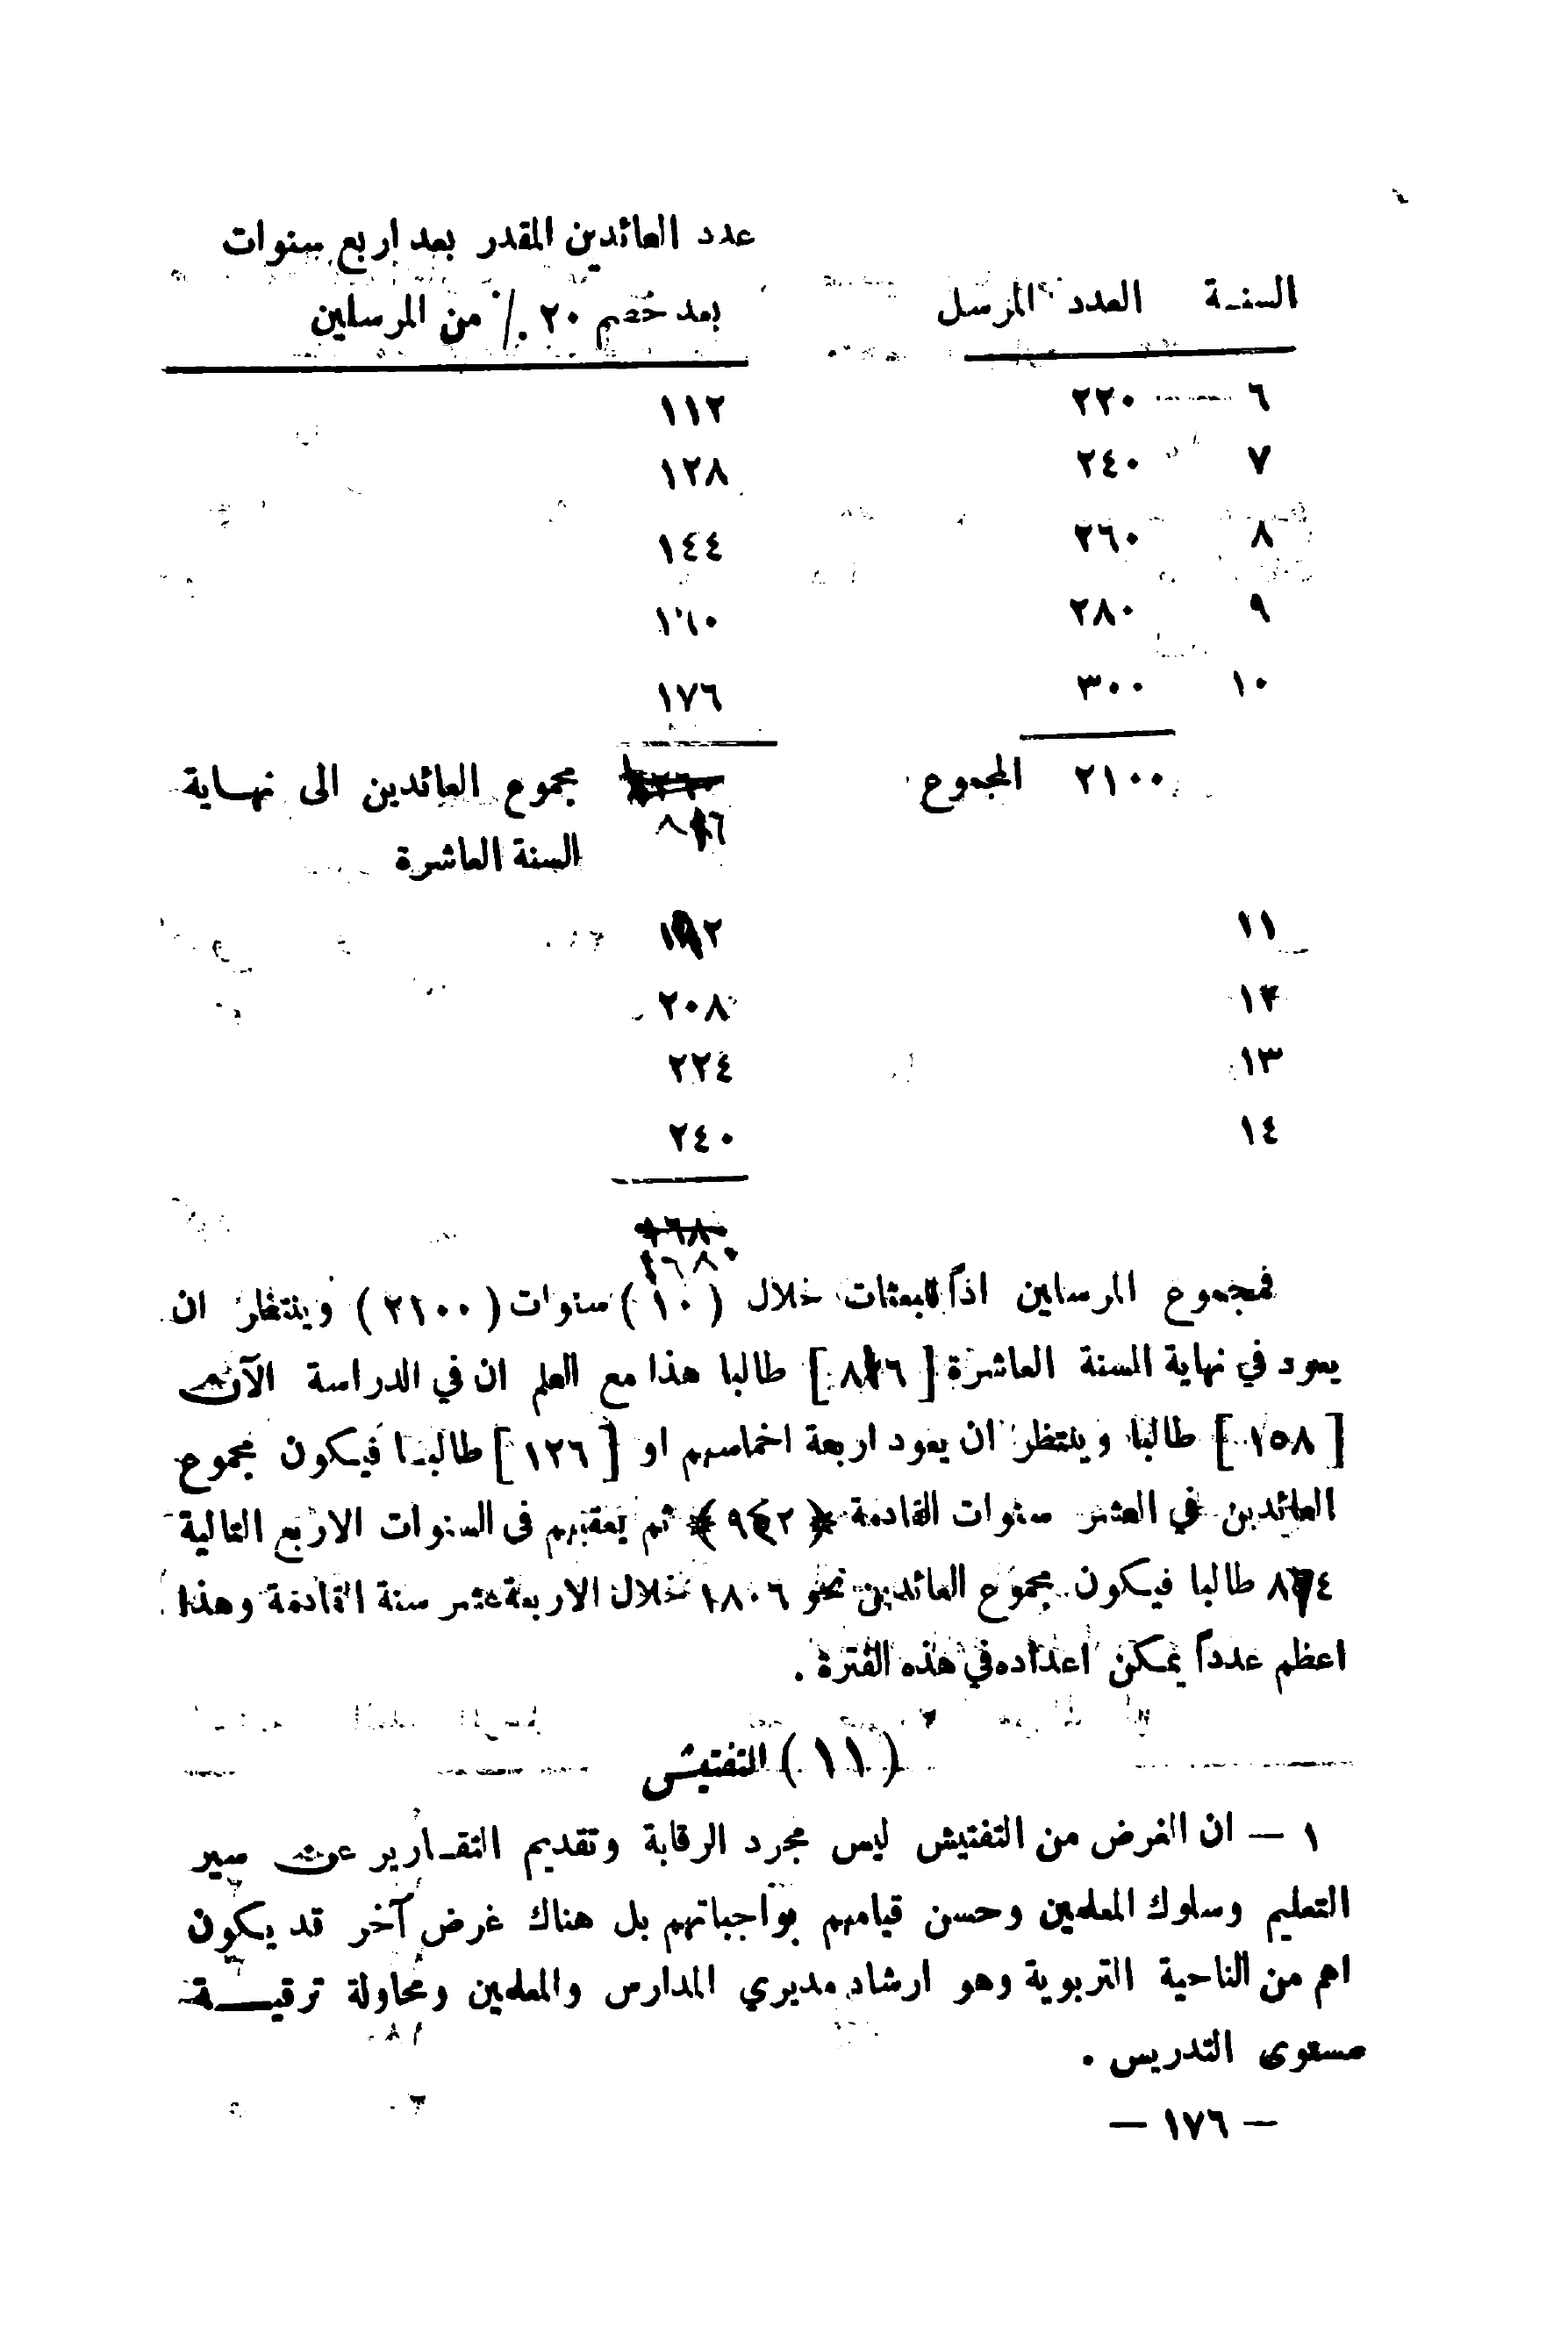 عدد العائدين المقدر بعد اربع سنوات
السنـة العدد المرسل بعد خصم ٢٠ ٪ من المرسلين
٦ ٢٢٠ ١١٢
٧ ٢٤٠ ١٢٨
٨ ٢٦٠ ١٤٤
٩ ٢٨٠ ١٦٠
١٠ ٣٠٠ ١٧٦
٢١٠٠ المجموع مجموع العائدين الى نهـاية
٨١٦ السنة العاشرة
١١ ١٩٢
١٢ ٢٠٨
١٣ ٢٢٤
١٤ ٢٤٠
١٦٨٠
١٦٨٠
فمجموع المرسلين اذاً للبعثات خلال (١٠) سنوات (٢١٠٠) وينتظر ان
يعود في نهاية السنة العاشرة [٨١٦] طالبا هذا مع العلم ان في الدراسة الآن
[١٥٨] طالبا وينتظر ان يعود اربعة اخماسهم او [١٢٦] طالبـا فيكون مجموع
العائدين في العشر سنوات القادمة (٩٤٢) ثم يعقبهم فى السنوات الاربع التالية
٨٦٤ طالبا فيكون مجموع العائدين نحو ١٨٠٦ خلال الاربعة عشر سنة القادمة وهذا
اعظم عدداً يمكن اعداده في هذه الفترة .
(١١) التفتيش
١ — ان الغرض من التفتيش ليس مجرد الرقابة وتقديم التقـارير عن سير
التعليم وسلوك المعلمين وحسن قيامهم بواجباتهم بل هناك غرض آخر قد يكون
اهم من الناحية التربوية وهو ارشاد مديري المدارس والمعلمين ومحاولة ترقيـة
مستوى التدريس .
— ١٧٦ —